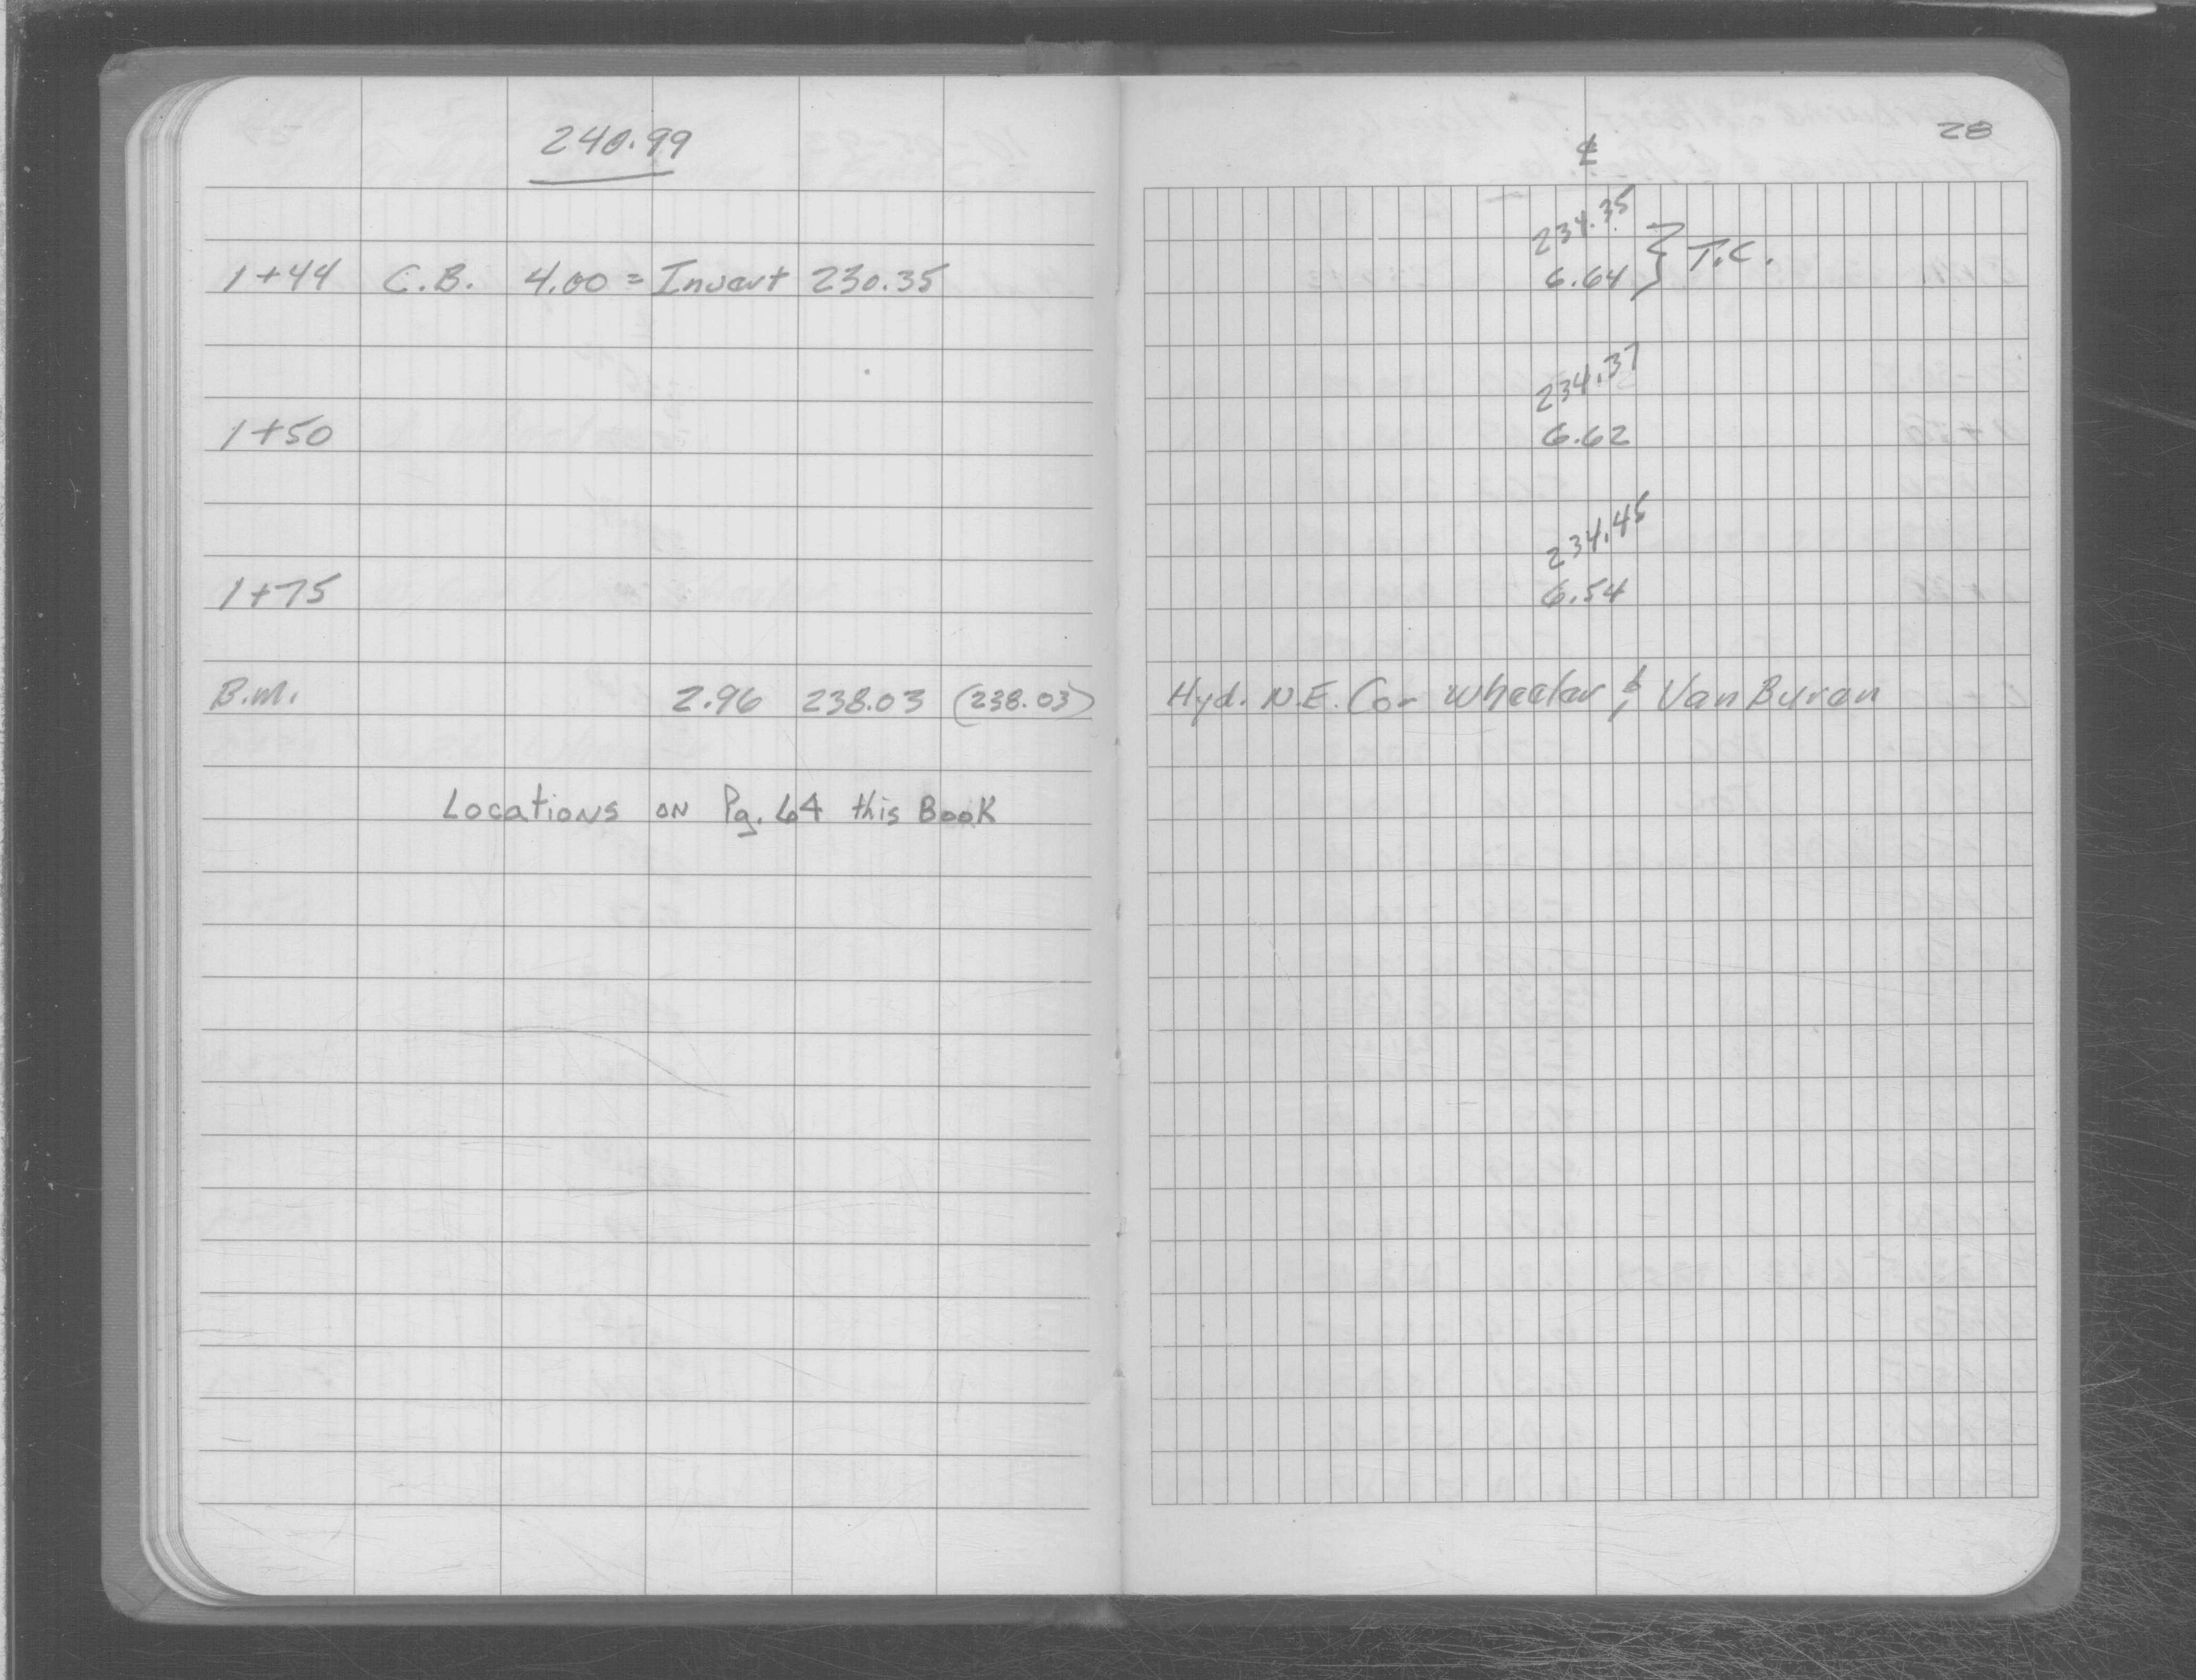 240.99
1+44 C.B. 4.00 = Invert 230.35
1+50
1+75
B.M. 2.96 238.03 (238.03)
Locations on Pg. 64 this Book
28
℄
234.35
6.64 } T.C.
234.37
6.62
234.45
6.54
Hyd. N.E. Cor Wheeler & Van Buren